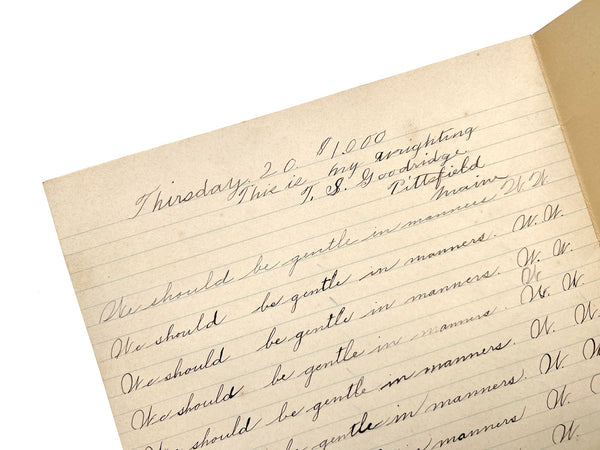 Thirsday. 20. $1.000
This is my wrighting
T. S. Goodridge.
Pittsfield
Maine
We should be gentle in manners W W
We should be gentle in manners. W. W.
We should be gentle in manners. W. W.
W
We should be gentle in manners. W. W.
We should be gentle in manners. W. W.
We should be gentle in manners. W. W
should be gentle in manners. W.
be gentle in manners W.
in manners. W.